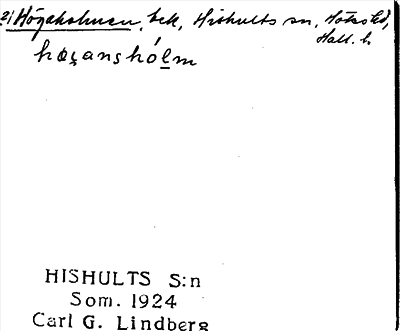 2) Högaholmen, bek, Hishults sn, Höks hd,
Hall. l.
hǫganshólm
HISHULTS S:n
Som. 1924
Carl G. Lindberg